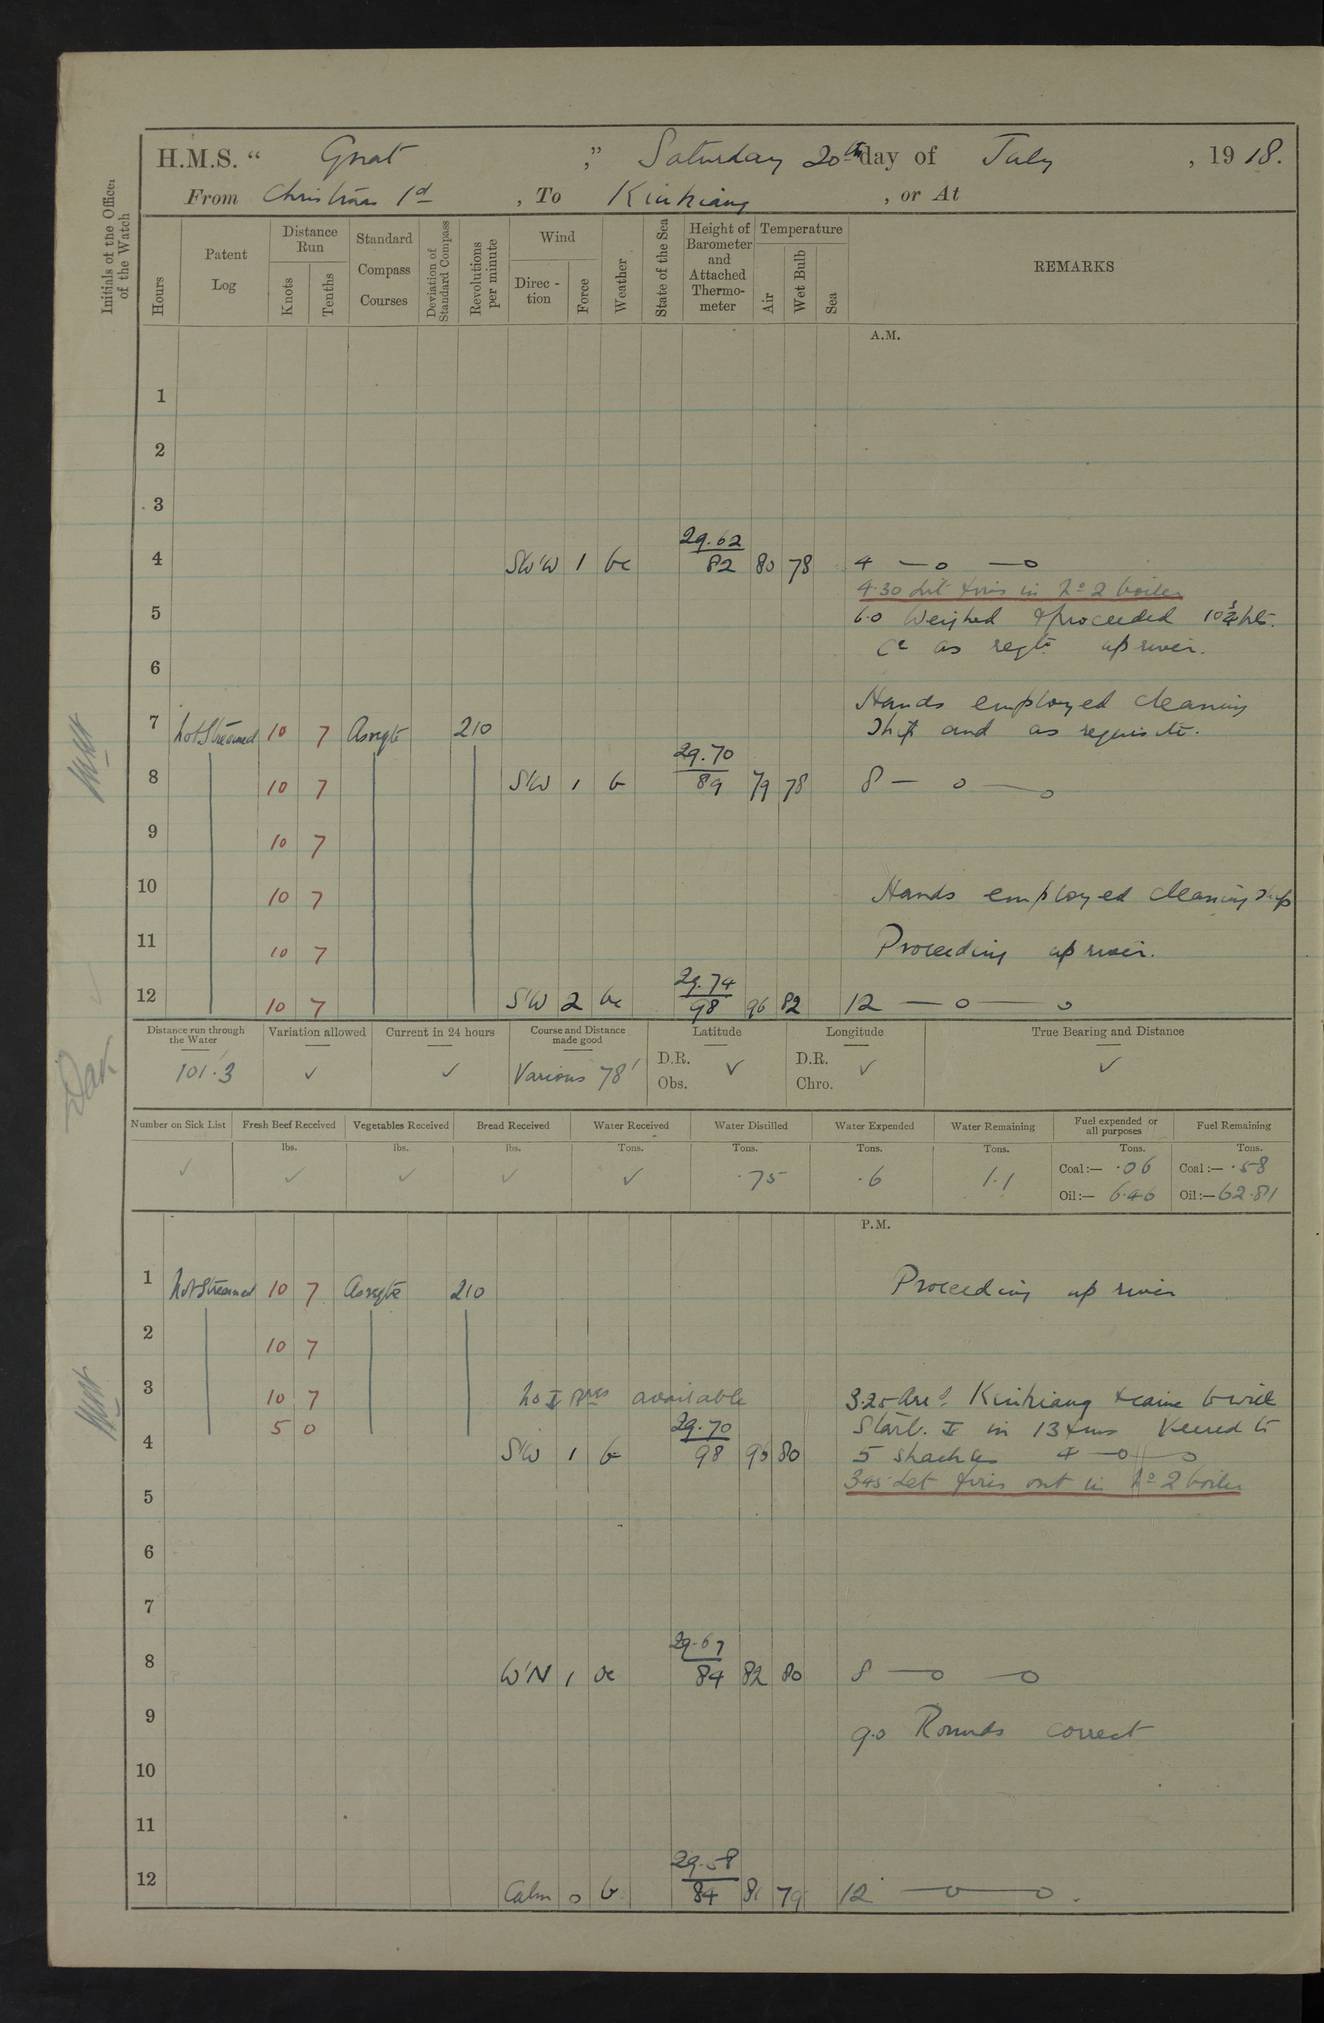 H.M.S. “ Gnat ,” Saturday 20th day of July , 19 18.
From Christmas Id , To Kiukiang , or At
Initials of the Officer of the Watch
Hours Patent Log Distance Run Knots Tenths Standard Compass Courses Deviation of Standard Compass Revolutions per minute Wind Direc-tion Force Weather State of the Sea Height of Barometer and Attached Thermo-meter Temperature Air Wet Bulb Sea REMARKS
A.M.
1
2
3
29.62
4 SW'W 1 bc 82 80 78 4 —o —o
4.30 Lit fires in No 2 boiler
5 6.0 Weighed & proceeded 10¾ kts.
Ce as regte up river.
6
Hands employed cleaning
7 not Streamed 10 7 As reqte 210 Ship and as requisite.
29.70
8 10 7 SW 1 b 89 79 78 8 — o — o
9 10 7
10 10 7 Hands employed cleaning Ship
11 10 7 Proceeding up river.
29.74
12 10 7 SW 2 bc 98 96 82 12 — o — o
Distance run through the Water Variation allowed Current in 24 hours Course and Distance made good Latitude Longitude True Bearing and Distance
101.3 ✓ ✓ Various 78' D.R. Obs. ✓ D.R. Chro. ✓ ✓
Number on Sick List Fresh Beef Received Vegetables Received Bread Received Water Received Water Distilled Water Expended Water Remaining Fuel expended or all purposes Fuel Remaining
lbs. lbs. lbs. Tons. Tons. Tons. Tons. Tons. Tons.
✓ ✓ ✓ ✓ ✓ .75 .6 1.1 Coal:— .06 Coal:— .58
Oil:— 6.46 Oil:— 62.81
P.M.
1 not Streamed 10 7 As reqte 210 Proceeding up river
2 10 7
3 10 7 available 3.25 Arrd. Kiukiang & came to with
5 0 29.70 Starb. in 13 fms Veered to
4 SW 1 b 98 96 80 5 shackles 4 —o— o
3.45 Let fires out in No 2 boiler
5
6
7
29.67
8 W'N 1 oc 84 82 80 8 —o —o
9 9.0 Rounds correct
10
11
29.58
12 Calm 0 b 84 81 79 12 —o—o.